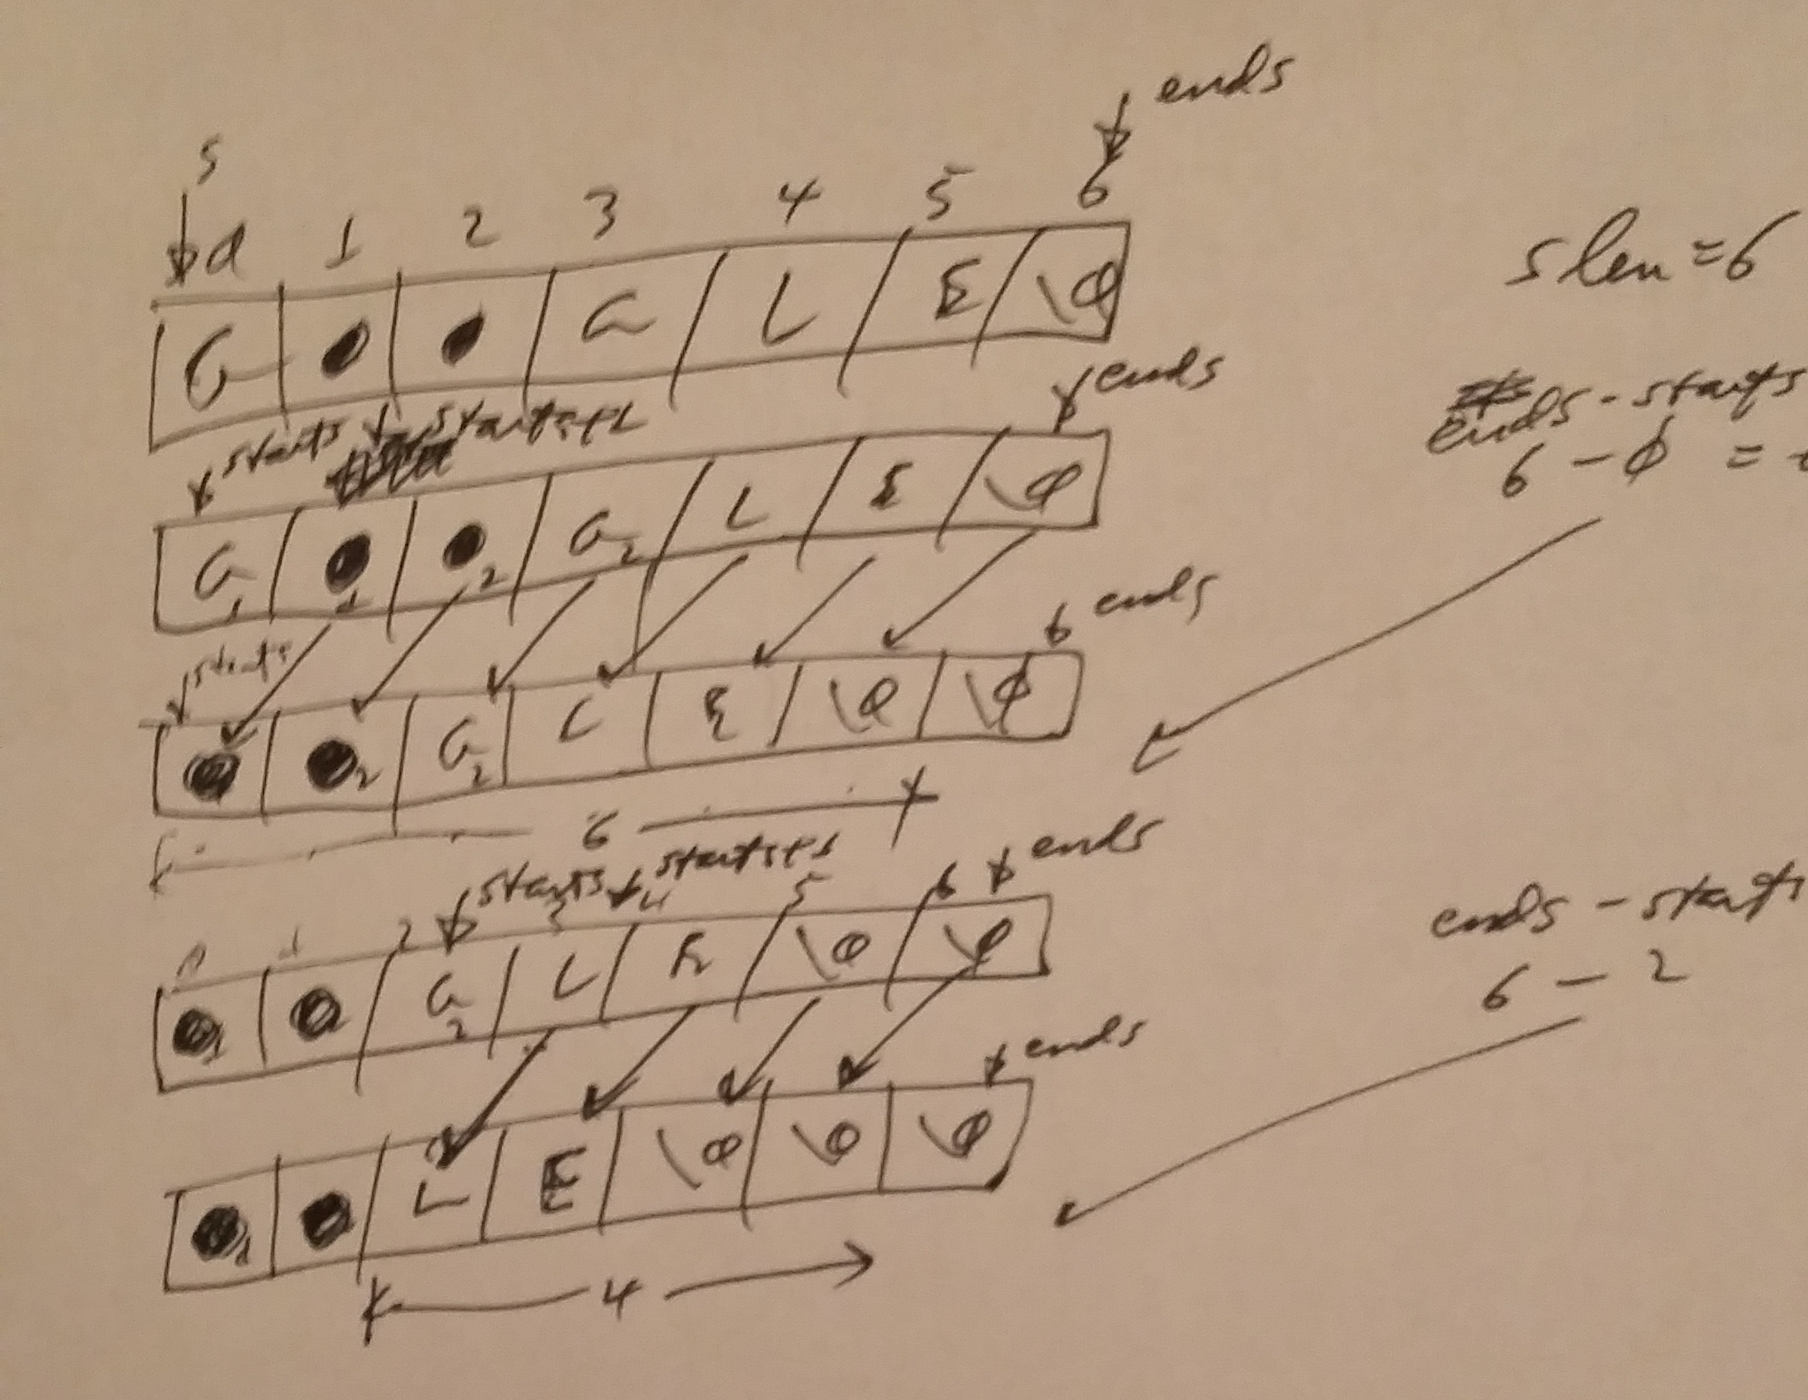 ends
s
0 1 2 3 4 5 6
G ● ● G L E \0
slen = 6
ends
starts starts+1
ends - starts
6 - 0 =
G1 ●1 ●2 G2 L E \0
ends
starts
● ●2 G2 L E \0 \0
6
starts starts+1 ends
0 1 2 3 4 5 6
●1 ● G2 L E \0 \0
ends - starts
6 - 2
ends
●1 ● L E \0 \0 \0
4